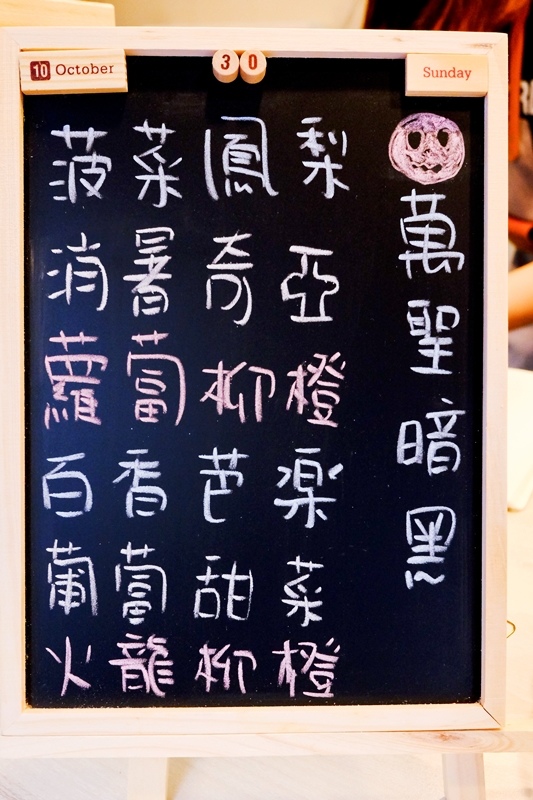 10 October
3 0
Sunday
萬聖暗黑
菠菜鳳梨
消暑奇亞
蘿蔔柳橙
百香芭楽
葡萄甜菜
火龍柳橙